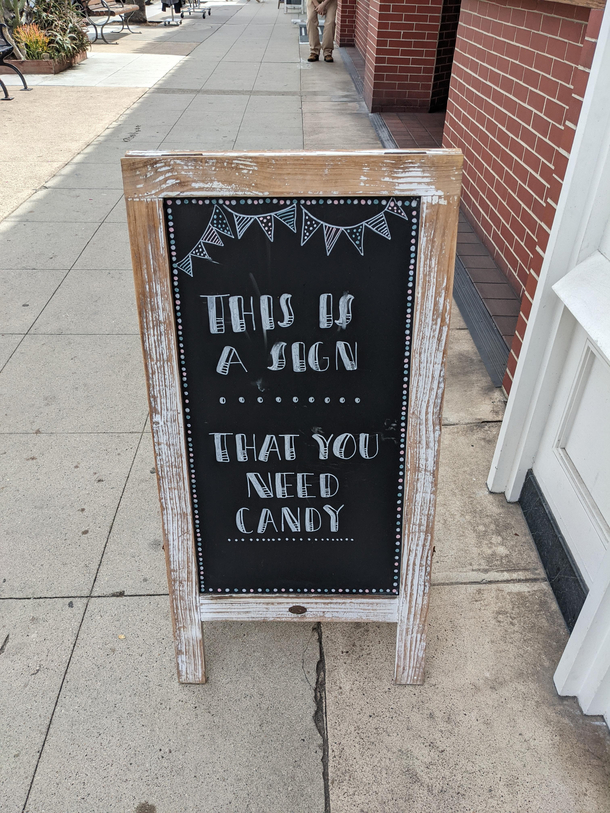 THIS IS
A SIGN
THAT YOU
NEED
CANDY